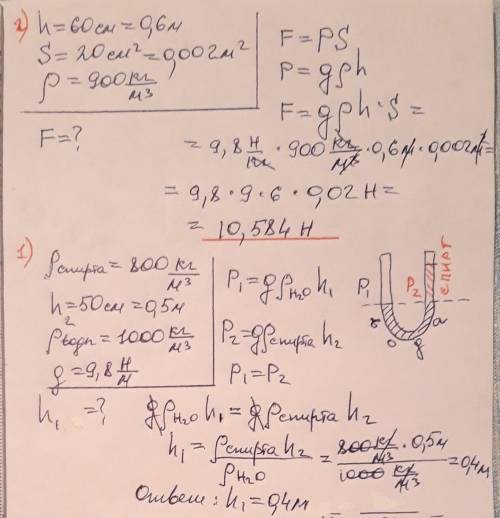 2) h = 60см = 0,6м
S = 20см² = 0,002м²
ρ = 900 кг/м³
F = ?
F = PS
P = gρh
F = gρh·S =
= 9,8 Н/кг · 900 кг/м³ · 0,6м · 0,002м² =
= 9,8 · 9 · 6 · 0,02 Н =
= 10,584 Н
1) ρспирта = 800 кг/м³
h₂ = 50см = 0,5м
ρводы = 1000 кг/м³
g = 9,8 Н/м
h₁ = ?
P₁ = gρH₂O h₁
P₂ = gρспирта h₂
P₁ = P₂
P₁ P₂ СПИРТ
в о д а
gρH₂O h₁ = gρспирта h₂
h₁ = ρспирта h₂ / ρH₂O = 800 кг/м³ · 0,5м / 1000 кг/м³ = 0,4м
Ответ: h₁ = 0,4м